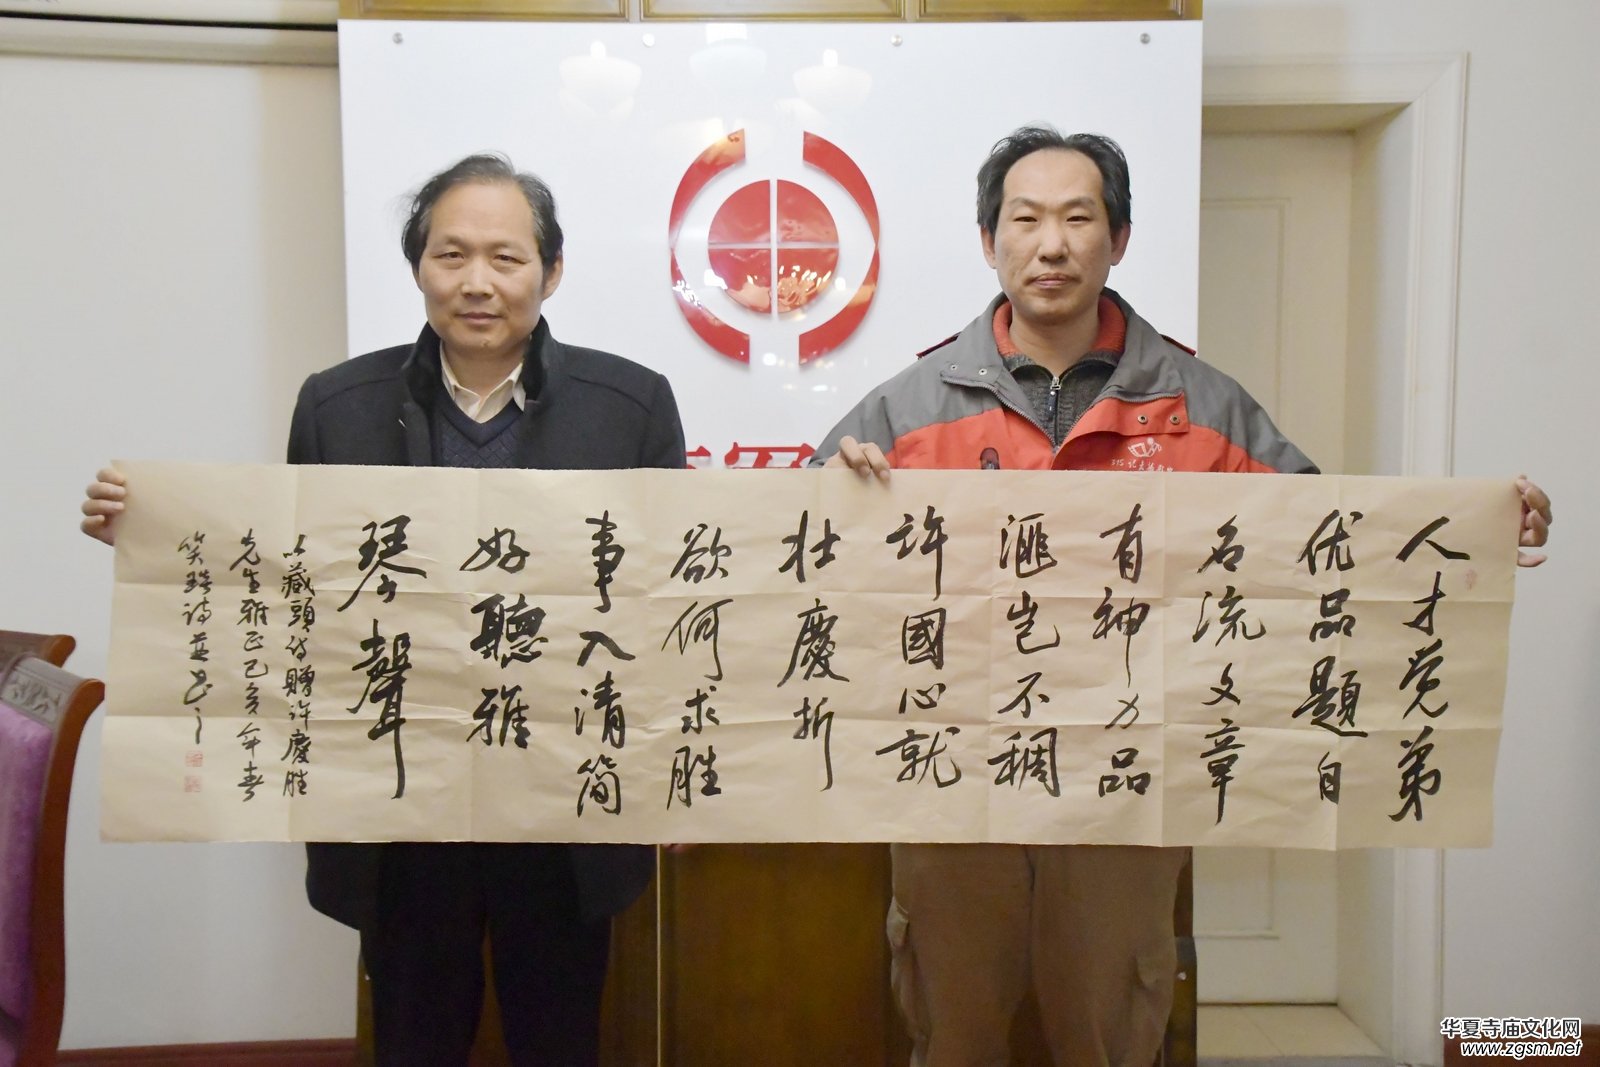 人才觉弟
优品题自
名流文章
有神力品
滙岂不稠
许國心就
壮慶折
欲何求胜
事入清简
好聽雅
琴聲
以藏頭诗赠许慶胜
先生雅正己亥年春
诗並书之
华夏寺庙文化网
www.zgsm.net